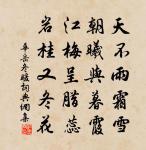 天不雨霜雪
朝曦與暮霞
江梅呈腊蕊
岩桂又冬花
華岳冬暖詞典網集